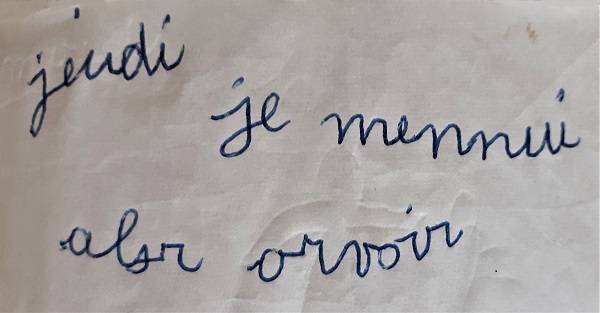 jeudi
je mennui
alor orvoir